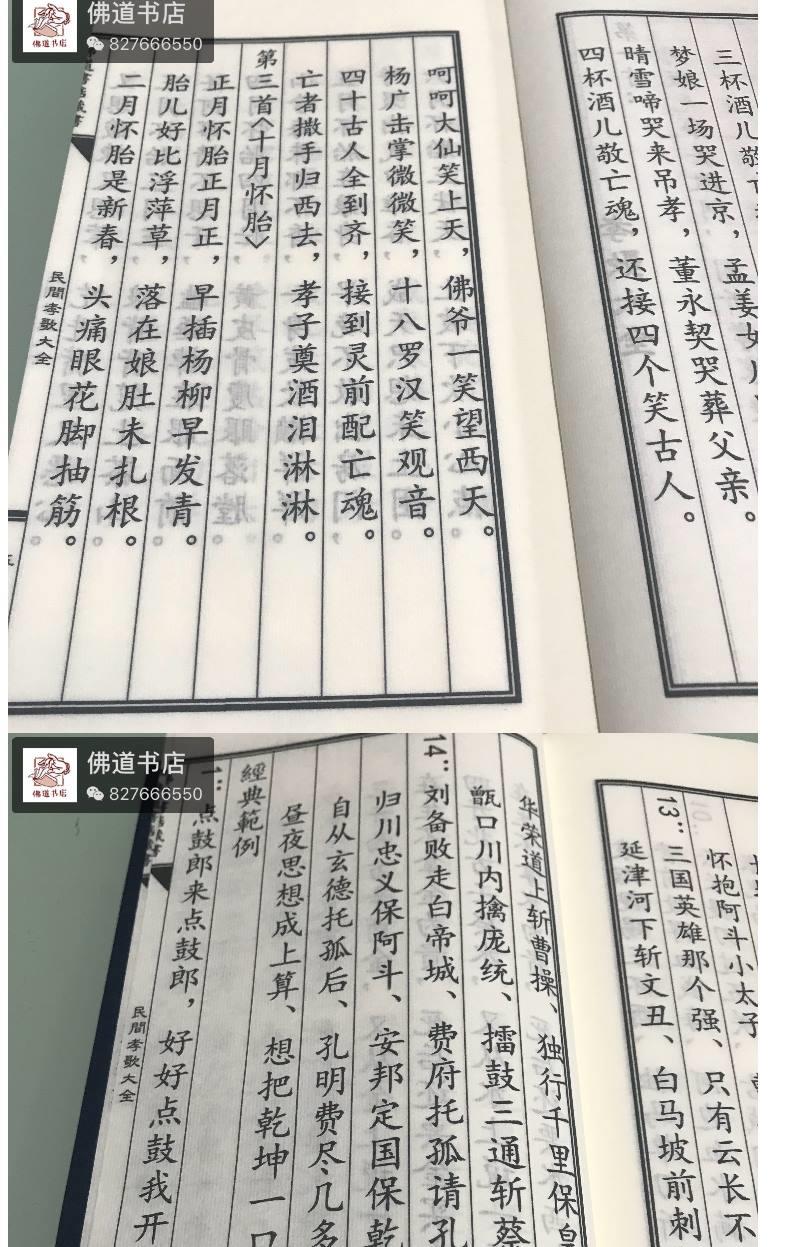 佛道书店
827666550
佛道书店
三杯酒儿敬亡
梦娘一场哭进京，孟姜女
晴雪啼哭来吊孝，董永契哭葬父亲。
四杯酒儿敬亡魂，还接四个笑古人。
呵呵大仙笑上天，佛爷一笑望西天。
杨广击掌微微笑，十八罗汉笑观音。
四十古人全到齐，接到灵前配亡魂。
亡者撒手归西去，孝子奠酒泪淋淋。
第三首《十月怀胎》
正月怀胎正月正，早插杨柳早发青。
胎儿好比浮萍草，落在娘肚未扎根。
二月怀胎是新春，头痛眼花脚抽筋。
民間孝歌大全
佛道书店
827666550
佛道书店
怀抱阿斗小太子
13：三国英雄那个强、只有云长不
延津河下斩文丑、白马坡前刺
华荣道上斩曹操、独行千里保皇
甑口川内擒庞统、擂鼓三通斩蔡
14：刘备败走白帝城、费府托孤请孔
归川忠义保阿斗、安邦定国保乾
自从玄德托孤后、孔明费尽几多
昼夜思想成上算、想把乾坤一口
經典範例
1：点鼓郎来点鼓郎，好好点鼓我开
民間孝歌大全